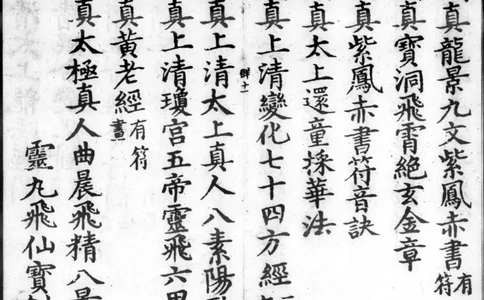 真龍景九文紫鳳赤書有符
真寶洞飛霄絕玄金章
真紫鳳赤書符音訣
真太上還童採華法
真上清變化七十四方經
真上清太上真人八素陽
真上清瓊宮五帝靈飛六甲
真黃老經有符
真太極真人曲晨飛精八景
靈九飛仙寶